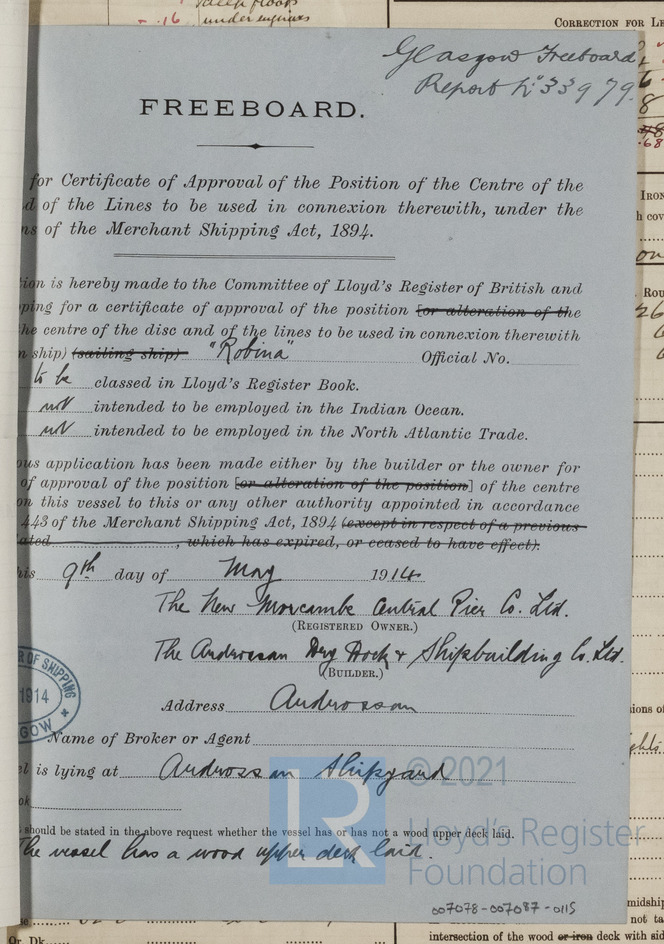 - .16 under engines
CORRECTION FOR LE
Glasgow Freeboard
Report No 33979.
FREEBOARD.
for Certificate of Approval of the Position of the Centre of the
d of the Lines to be used in connexion therewith, under the
ns of the Merchant Shipping Act, 1894.
tion is hereby made to the Committee of Lloyd's Register of British and
ping for a certificate of approval of the position [or alteration of the
he centre of the disc and of the lines to be used in connexion therewith
n ship) (sailing ship) "Robina" Official No.
to be classed in Lloyd's Register Book.
not intended to be employed in the Indian Ocean.
not intended to be employed in the North Atlantic Trade.
ous application has been made either by the builder or the owner for
of approval of the position [or alteration of the position] of the centre
on this vessel to this or any other authority appointed in accordance
443 of the Merchant Shipping Act, 1894 (except in respect of a previous
ated, which has expired, or ceased to have effect).
his 9th day of May 1914
The New Morcambe Central Pier Co. Ltd.
(REGISTERED OWNER.)
The Ardrossan Dry Dock & Shipbuilding Co. Ltd.
(BUILDER.)
R OF SHIPPING
1914
GOW
Address Ardrossan
Name of Broker or Agent
el is lying at Ardrossan Shipyard
ok
should be stated in the above request whether the vessel has or has not a wood upper deck laid.
The vessel has a wood upper deck laid.
LR © 2021
Lloyd's Register
Foundation
007078-007087-0115
IRON
h cov
Rou
26
ions of
ghts
Or. Dk.
midship
not ta
intersection of the wood or iron deck with sid